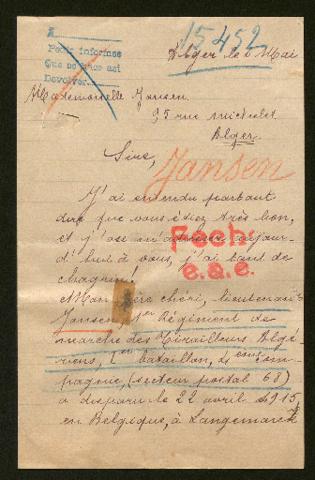 A
Pedir informes
Que se hace asi
Devolver
15452
Alger le 6 Mai
Mademoiselle Jansen
95 rue michelet
Alger
Sire,
Jansen
J'ai entendu partout
dire que vous étiez très bon,
et j'ose m'adresser aujour-
d'hui à vous, j'ai tant de
chagrin!
Fecho
e.a.e.
Mon père chéri, lieutenant
Jansen, 1er Régiment de
marche des Tirailleurs Algé-
riens, 1er bataillon, 2 eme com-
pagnie, (secteur postal 68)
a disparu le 22 avril 1915,
en Belgique, à Langemarck